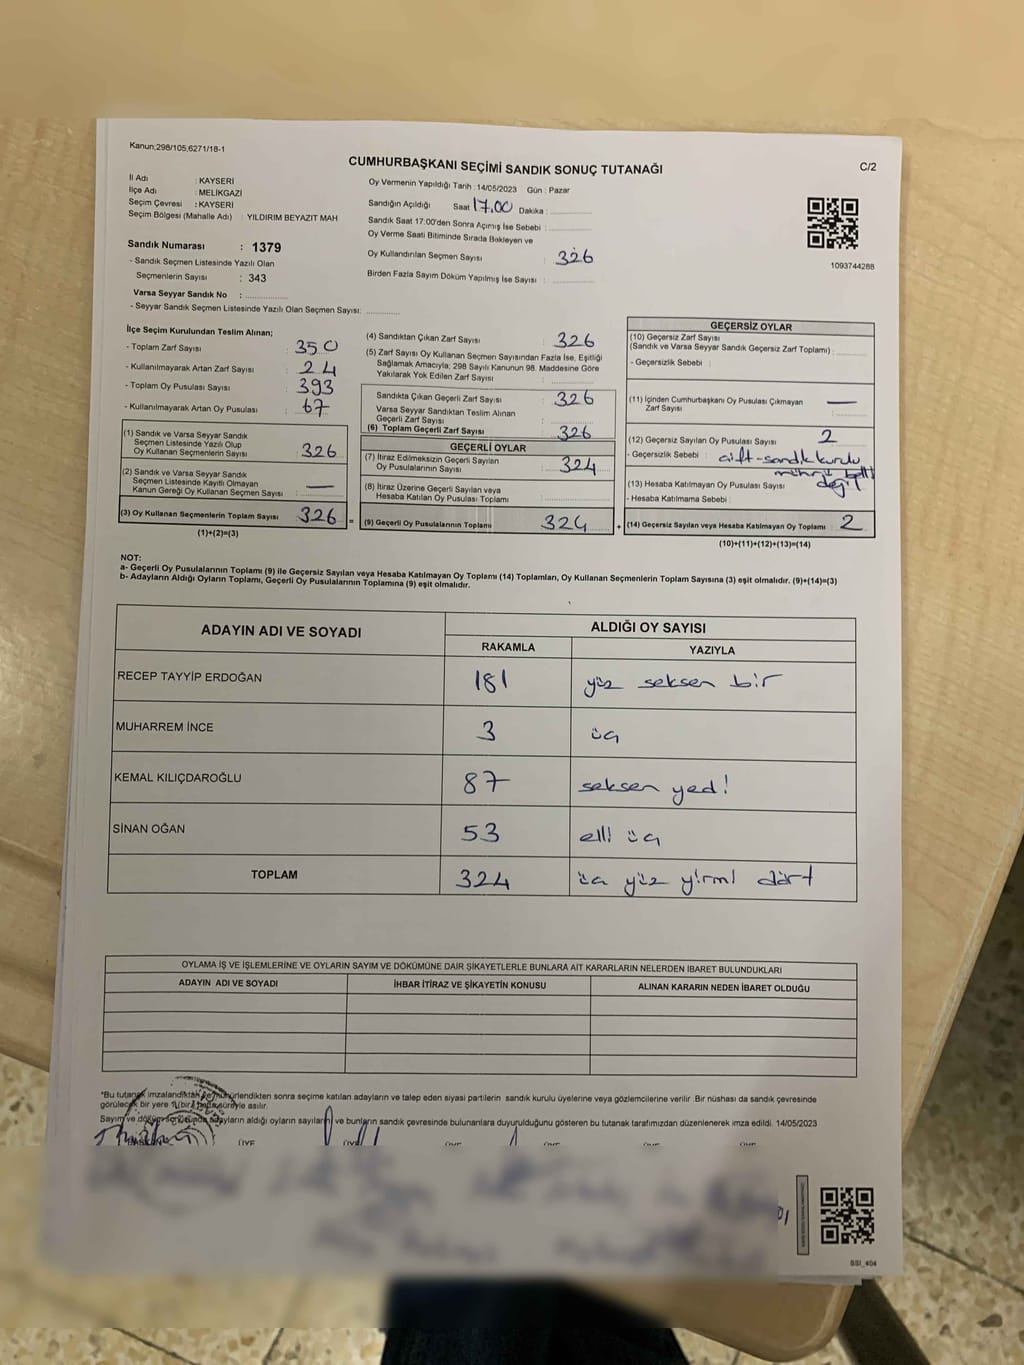 Kanun;298/105,6271/18-1
CUMHURBAŞKANI SEÇİMİ SANDIK SONUÇ TUTANAĞI
C/2
İl Adı : KAYSERİ
İlçe Adı : MELİKGAZİ
Seçim Çevresi : KAYSERİ
Seçim Bölgesi (Mahalle Adı) : YILDIRIM BEYAZIT MAH
Sandık Numarası : 1379
- Sandık Seçmen Listesinde Yazılı Olan
Seçmenlerin Sayısı : 343
Varsa Seyyar Sandık No :
- Seyyar Sandık Seçmen Listesinde Yazılı Olan Seçmen Sayısı:
Oy Vermenin Yapıldığı Tarih :14/05/2023 Gün : Pazar
Sandığın Açıldığı Saat 17.00 Dakika :
Sandık Saat 17:00'den Sonra Açımış İse Sebebi :
Oy Verme Saati Bitiminde Sırada Bekleyen ve
Oy Kullandırılan Seçmen Sayısı : 326
Birden Fazla Sayım Döküm Yapılmış İse Sayısı :
1093744288
İlçe Seçim Kurulundan Teslim Alınan;
- Toplam Zarf Sayısı : 350
- Kullanılmayarak Artan Zarf Sayısı : 24
- Toplam Oy Pusulası Sayısı : 393
- Kullanılmayarak Artan Oy Pusulası : 67
(1) Sandık ve Varsa Seyyar Sandık
Seçmen Listesinde Yazılı Olup
Oy Kullanan Seçmenlerin Sayısı : 326
(2) Sandık ve Varsa Seyyar Sandık
Seçmen Listesinde Kayıtlı Olmayan
Kanun Gereği Oy Kullanan Seçmen Sayısı : —
(3) Oy Kullanan Seçmenlerin Toplam Sayısı 326
(1)+(2)=(3)
(4) Sandıktan Çıkan Zarf Sayısı : 326
(5) Zarf Sayısı Oy Kullanan Seçmen Sayısından Fazla İse, Eşitliği
Sağlamak Amacıyla; 298 Sayılı Kanunun 98. Maddesine Göre
Yakılarak Yok Edilen Zarf Sayısı :
Sandıkta Çıkan Geçerli Zarf Sayısı : 326
Varsa Seyyar Sandıktan Teslim Alınan
Geçerli Zarf Sayısı :
(6) Toplam Geçerli Zarf Sayısı : 326
GEÇERLİ OYLAR
(7) İtiraz Edilmeksizin Geçerli Sayılan
Oy Pusulalarının Sayısı : 324
(8) İtiraz Üzerine Geçerli Sayılan veya
Hesaba Katılan Oy Pusulası Toplamı :
= (9) Geçerli Oy Pusulalarının Toplamı 324 +
GEÇERSİZ OYLAR
(10) Geçersiz Zarf Sayısı
(Sandık ve Varsa Seyyar Sandık Geçersiz Zarf Toplamı) :
- Geçersizlik Sebebi :
(11) İçinden Cumhurbaşkanı Oy Pusulası Çıkmayan
Zarf Sayısı : —
(12) Geçersiz Sayılan Oy Pusulası Sayısı : 2
- Geçersizlik Sebebi : çift-sandık kurulu
mührü belli
değil
(13) Hesaba Katılmayan Oy Pusulası Sayısı :
- Hesaba Katılmama Sebebi :
(14) Geçersiz Sayılan veya Hesaba Katılmayan Oy Toplamı : 2
(10)+(11)+(12)+(13)=(14)
NOT:
a- Geçerli Oy Pusulalarının Toplamı (9) ile Geçersiz Sayılan veya Hesaba Katılmayan Oy Toplamı (14) Toplamları, Oy Kullanan Seçmenlerin Toplam Sayısına (3) eşit olmalıdır. (9)+(14)=(3)
b- Adayların Aldığı Oyların Toplamı, Geçerli Oy Pusulalarının Toplamına (9) eşit olmalıdır.
ADAYIN ADI VE SOYADI
ALDIĞI OY SAYISI
RAKAMLA YAZIYLA
RECEP TAYYİP ERDOĞAN 181 yüz seksen bir
MUHARREM İNCE 3 üç
KEMAL KILIÇDAROĞLU 87 seksen yedi
SİNAN OĞAN 53 elli üç
TOPLAM 324 üç yüz yirmi dört
OYLAMA İŞ VE İŞLEMLERİNE VE OYLARIN SAYIM VE DÖKÜMÜNE DAİR ŞİKAYETLERLE BUNLARA AİT KARARLARIN NELERDEN İBARET BULUNDUKLARI
ADAYIN ADI VE SOYADI İHBAR İTİRAZ VE ŞİKAYETİN KONUSU ALINAN KARARIN NEDEN İBARET OLDUĞU
*Bu tutanak imzalandıktan ve mühürlendikten sonra seçime katılan adayların ve talep eden siyasi partilerin sandık kurulu üyelerine veya gözlemcilerine verilir .Bir nüshası da sandık çevresinde
görülecek bir yere 1(bir) hafta süreyle asılır.
Sayım ve döküm sonucunda adayların aldığı oyların sayılarını ve bunların sandık çevresinde bulunanlara duyurulduğunu gösteren bu tutanak tarafımızdan düzenlenerek imza edildi. 14/05/2023
BAŞKAN ÜYE ÜYE ÜYE ÜYE ÜYE ÜYE
SSI_404